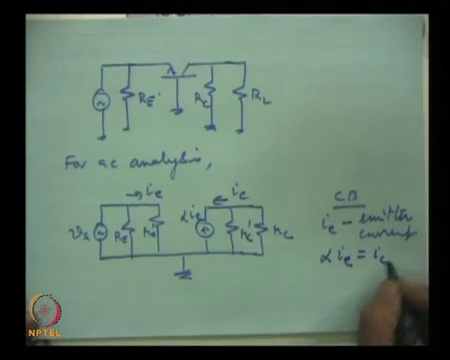 RE RC RL
For ac analysis,
ie ic
vs RE re' αie rc' RC
CB
ie - emitter
current
αie = ic
NPTEL